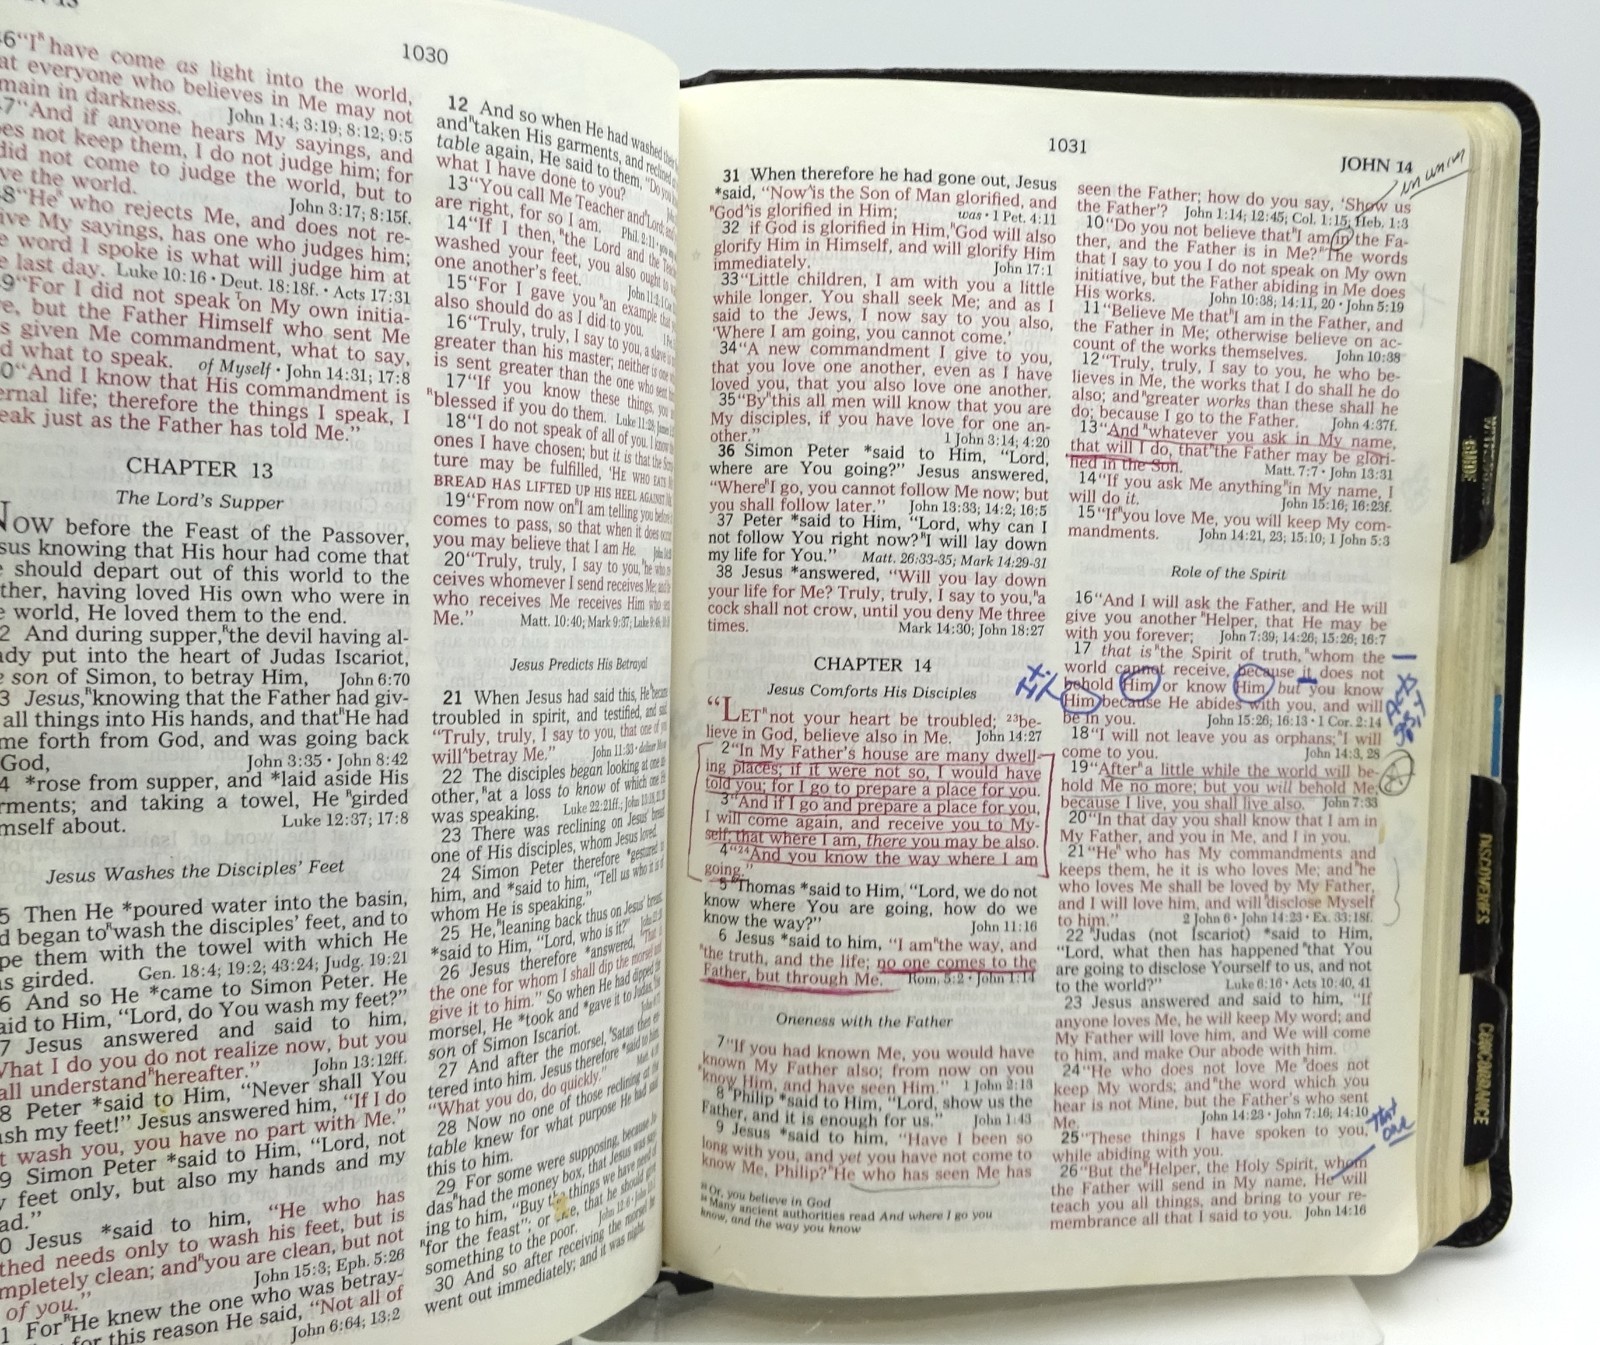 1030
46 "I have come as light into the world,
at everyone who believes in Me may not
main in darkness. John 1:4; 3:19; 8:12; 9:5
7 "And if anyone hears My sayings, and
es not keep them, I do not judge him; for
did not come to judge the world, but to
ve the world. John 3:17; 8:15f.
8 "He who rejects Me, and does not re-
ive My sayings, has one who judges him;
e word I spoke is what will judge him at
e last day. Luke 10:16 · Deut. 18:18f. · Acts 17:31
9 "For I did not speak on My own initia-
e, but the Father Himself who sent Me
s given Me commandment, what to say,
d what to speak. of Myself · John 14:31; 17:8
0 "And I know that His commandment is
ernal life; therefore the things I speak, I
eak just as the Father has told Me."
CHAPTER 13
The Lord's Supper
NOW before the Feast of the Passover,
sus knowing that His hour had come that
e should depart out of this world to the
ther, having loved His own who were in
e world, He loved them to the end.
2 And during supper, the devil having al-
ady put into the heart of Judas Iscariot,
e son of Simon, to betray Him, John 6:70
3 Jesus, knowing that the Father had giv-
all things into His hands, and that He had
me forth from God, and was going back
God, John 3:35 · John 8:42
4 *rose from supper, and *laid aside His
rments; and taking a towel, He girded
mself about. Luke 12:37; 17:8
Jesus Washes the Disciples' Feet
5 Then He *poured water into the basin,
d began to wash the disciples' feet, and to
pe them with the towel with which He
as girded. Gen. 18:4; 19:2; 43:24; Judg. 19:21
6 And so He *came to Simon Peter. He
aid to Him, "Lord, do You wash my feet?"
7 Jesus answered and said to him,
What I do you do not realize now, but you
all understand hereafter." John 13:12ff.
8 Peter *said to Him, "Never shall You
sh my feet!" Jesus answered him, "If I do
t wash you, you have no part with Me."
9 Simon Peter *said to Him, "Lord, not
y feet only, but also my hands and my
ad."
0 Jesus *said to him, "He who has
thed needs only to wash his feet, but is
mpletely clean; and you are clean, but not
of you." John 15:3; Eph. 5:26
1 For He knew the one who was betray-
for this reason He said, "Not all of
John 6:64; 13:2
12 And so when He had washed
and taken His garments, and reclined
table again, He said to them, "Do you
what I have done to you?
13 "You call Me Teacher and Lord;
are right, for so I am. Phil. 2:11
14 "If I then, the Lord and the
washed your feet, you also ought to
one another's feet.
15 "For I gave you an example that
also should do as I did to you.
16 "Truly, truly, I say to you, a slave is
greater than his master; neither is one
is sent greater than the one who sent
17 "If you know these things, you
blessed if you do them.
18 "I do not speak of all of you. I know the
ones I have chosen; but it is that the
ture may be fulfilled, 'HE WHO EATS
BREAD HAS LIFTED UP HIS HEEL AGAINST
19 "From now on I am telling you before
comes to pass, so that when it does occur,
you may believe that I am He.
20 "Truly, truly, I say to you, he who re-
ceives whomever I send receives Me; and
who receives Me receives Him who
Me." Matt. 10:40; Mark 9:37;
Jesus Predicts His Betrayal
21 When Jesus had said this, He became
troubled in spirit, and testified, and said
"Truly, truly, I say to you, that one of
will betray Me." John 11:33
22 The disciples began looking at one
other, at a loss to know of which one
was speaking. Luke 22:21ff.;
23 There was reclining on Jesus' breast
one of His disciples, whom Jesus loved.
24 Simon Peter therefore *gestured to
him, and *said to him, "Tell us who it is of
whom He is speaking."
25 He, leaning back thus on Jesus' breast,
*said to Him, "Lord, who is it?"
26 Jesus therefore *answered, "That is
the one for whom I shall dip the morsel and
give it to him." So when He had dipped the
morsel, He *took and *gave it to Judas, the
son of Simon Iscariot.
27 And after the morsel, Satan then en-
tered into him. Jesus therefore *said to him,
"What you do, do quickly."
28 Now no one of those reclining at the
table knew for what purpose He had said
this to him.
29 For some were supposing, because Ju-
das had the money box, that Jesus was say-
ing to him, "Buy the things we have need of
for the feast"; or else, that he should give
something to the poor.
30 And so after receiving the morsel he
went out immediately; and it was night.
1031
JOHN 14
in union
31 When therefore he had gone out, Jesus
*said, "Now is the Son of Man glorified, and
God is glorified in Him; was · 1 Pet. 4:11
32 if God is glorified in Him, God will also
glorify Him in Himself, and will glorify Him
immediately. John 17:1
33 "Little children, I am with you a little
while longer. You shall seek Me; and as I
said to the Jews, I now say to you also,
'Where I am going, you cannot come.'
34 "A new commandment I give to you,
that you love one another, even as I have
loved you, that you also love one another.
35 "By this all men will know that you are
My disciples, if you have love for one an-
other." 1 John 3:14; 4:20
36 Simon Peter *said to Him, "Lord,
where are You going?" Jesus answered,
"Where I go, you cannot follow Me now; but
you shall follow later." John 13:33; 14:2; 16:5
37 Peter *said to Him, "Lord, why can I
not follow You right now? I will lay down
my life for You." Matt. 26:33-35; Mark 14:29-31
38 Jesus *answered, "Will you lay down
your life for Me? Truly, truly, I say to you, a
cock shall not crow, until you deny Me three
times. Mark 14:30; John 18:27
CHAPTER 14
Jesus Comforts His Disciples
"LET not your heart be troubled; 23be-
lieve in God, believe also in Me. John 14:27
2 "In My Father's house are many dwell-
ing places; if it were not so, I would have
told you; for I go to prepare a place for you.
3 "And if I go and prepare a place for you,
I will come again, and receive you to My-
self; that where I am, there you may be also.
4 "24And you know the way where I am
going."
5 Thomas *said to Him, "Lord, we do not
know where You are going, how do we
know the way?" John 11:16
6 Jesus *said to him, "I am the way, and
the truth, and the life; no one comes to the
Father, but through Me. Rom. 5:2 · John 1:14
Oneness with the Father
7 "If you had known Me, you would have
known My Father also; from now on you
know Him, and have seen Him." 1 John 2:13
8 Philip *said to Him, "Lord, show us the
Father, and it is enough for us." John 1:43
9 Jesus *said to him, "Have I been so
long with you, and yet you have not come to
know Me, Philip? He who has seen Me has
23 Or, you believe in God
24 Many ancient authorities read And where I go you
know, and the way you know
seen the Father; how do you say, 'Show us
the Father'? John 1:14; 12:45; Col. 1:15; Heb. 1:3
10 "Do you not believe that I am in the Fa-
ther, and the Father is in Me? The words
that I say to you I do not speak on My own
initiative, but the Father abiding in Me does
His works. John 10:38; 14:11, 20 · John 5:19
11 "Believe Me that I am in the Father, and
the Father in Me; otherwise believe on ac-
count of the works themselves. John 10:38
12 "Truly, truly, I say to you, he who be-
lieves in Me, the works that I do shall he do
also; and greater works than these shall he
do; because I go to the Father. John 4:37f.
13 "And whatever you ask in My name,
that will I do, that the Father may be glori-
fied in the Son. Matt. 7:7 · John 13:31
14 "If you ask Me anything in My name, I
will do it. John 15:16; 16:23f.
15 "If you love Me, you will keep My com-
mandments. John 14:21, 23; 15:10; 1 John 5:3
Role of the Spirit
16 "And I will ask the Father, and He will
give you another Helper, that He may be
with you forever; John 7:39; 14:26; 15:26; 16:7
17 that is the Spirit of truth, whom the
world cannot receive, because it does not
behold Him or know Him, but you know
Him because He abides with you, and will
be in you. John 15:26; 16:13 · 1 Cor. 2:14
18 "I will not leave you as orphans; I will
come to you. John 14:3, 28
19 "After a little while the world will be-
hold Me no more; but you will behold Me;
because I live, you shall live also. John 7:33
20 "In that day you shall know that I am in
My Father, and you in Me, and I in you.
21 "He who has My commandments and
keeps them, he it is who loves Me; and he
who loves Me shall be loved by My Father,
and I will love him, and will disclose Myself
to him." 2 John 6 · John 14:23 · Ex. 33:18f.
22 Judas (not Iscariot) *said to Him,
"Lord, what then has happened that You
are going to disclose Yourself to us, and not
to the world?" Luke 6:16 · Acts 10:40, 41
23 Jesus answered and said to him, "If
anyone loves Me, he will keep My word; and
My Father will love him, and We will come
to him, and make Our abode with him.
24 "He who does not love Me does not
keep My words; and the word which you
hear is not Mine, but the Father's who sent
Me. John 14:23 · John 7:16; 14:10
25 "These things I have spoken to you,
while abiding with you.
26 "But the Helper, the Holy Spirit, whom
the Father will send in My name, He will
teach you all things, and bring to your re-
membrance all that I said to you. John 14:16
Acts
that
one
GUIDE
CONCORDANCE